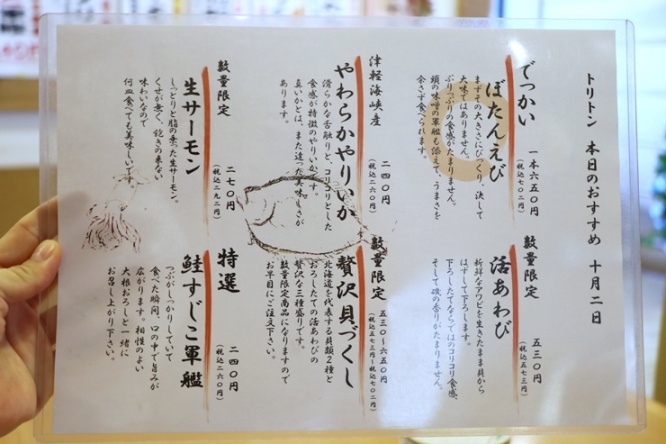 トリトン 本日のおすすめ 十月二日
でっかい
ぼたんえび
一本六五〇円
(税込七〇二円)
まずその大きさにびっくり、決して
大味ではありません。
ぷりっぷりの食感がたまりません。
頭の味噌の軍艦も添えて、うまさを
余さず食べられます。
数量限定
活あわび
五三〇円
(税込五七三円)
新鮮なアワビを生きたまま貝から
はずして下ろします。
下ろしたてならではのコリコリ食感、
そして磯の香りがたまりません。
津軽海峡産
やわらかやりいか
二四〇円
(税込二六〇円)
滑らかな舌触りと、コリコリとした
食感が特徴のやりいかです。
真いかとは、また違った美味しさが
あります。
数量限定
贅沢貝づくし
五三〇~六五〇円
(税込五七三円~税込七〇二円)
北海道を代表する貝類2種と
おろしたての活あわびの
贅沢な三種盛りです。
数量限定商品になりますので
お早目にご注文下さい。
数量限定
生サーモン
二七〇円
(税込二九二円)
しっとりと脂の乗った生サーモン。
くせが無く、飽きの来ない
味わいなので
何皿食べても美味しいです。
特選
鮭すじこ軍艦
二四〇円
(税込二六〇円)
つぶがしっかりしていて
食べた瞬間、口の中で旨みが
広がります。相性のよい
大根おろしと一緒に
お召し上がり下さい。